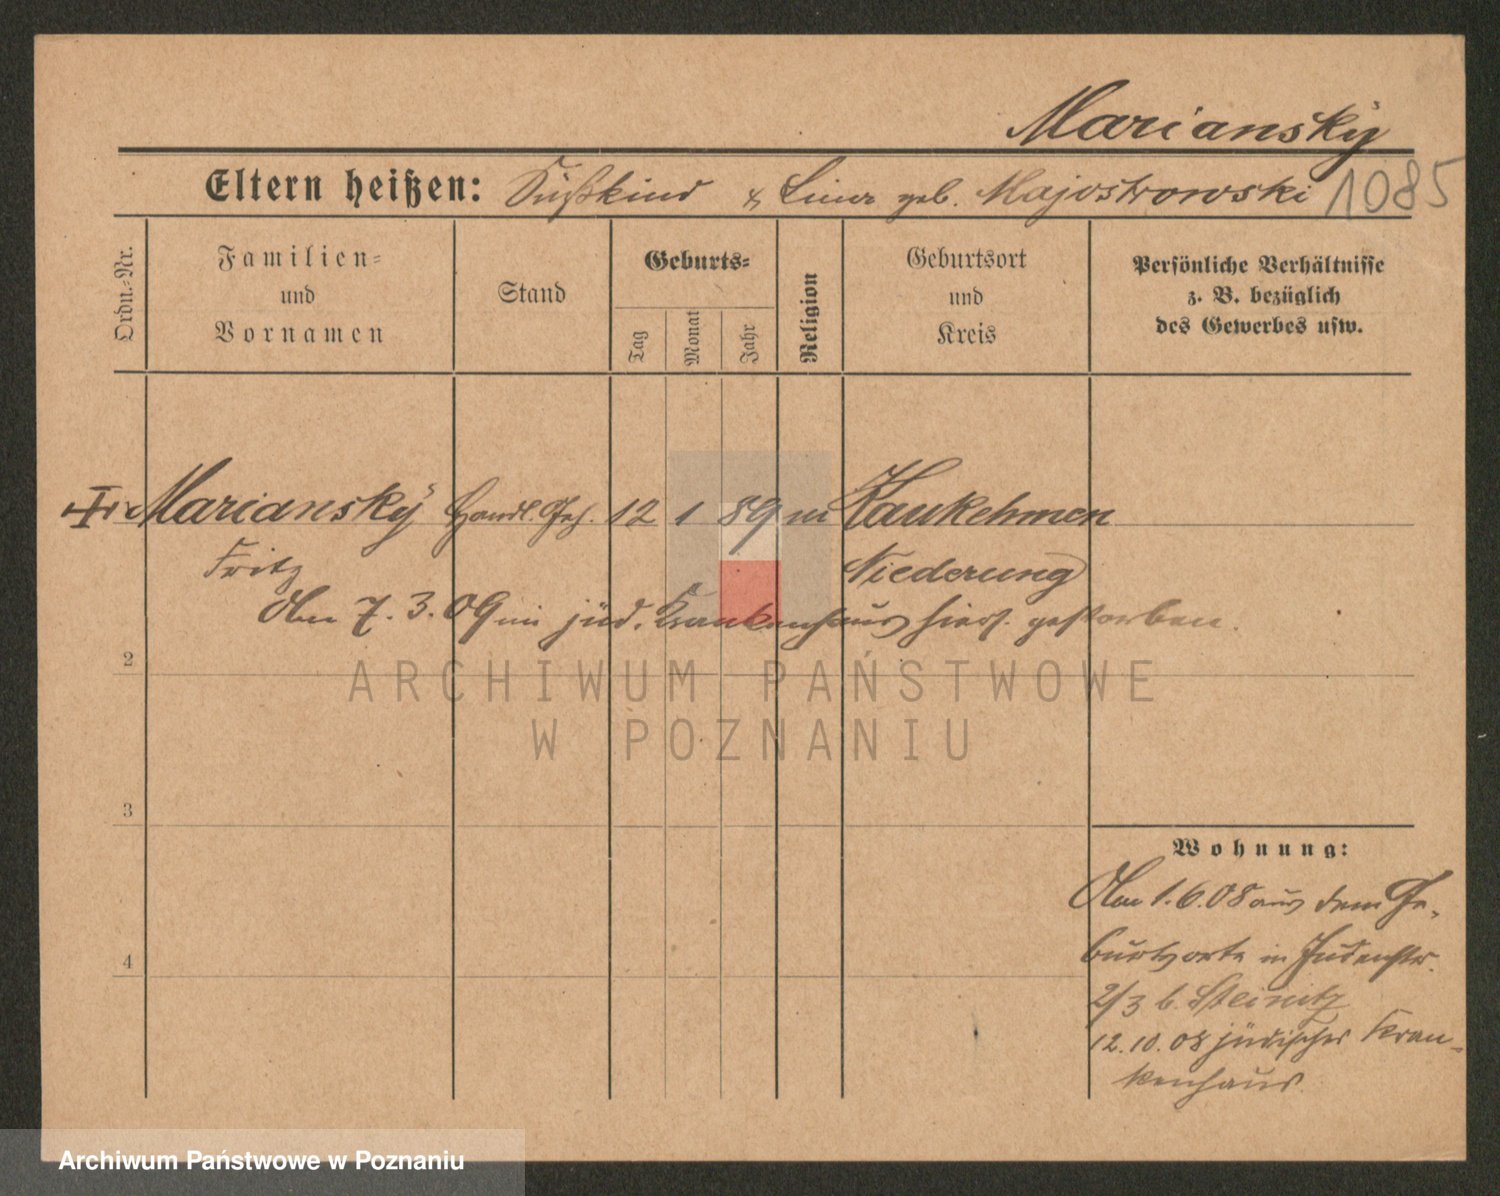 Mariansky
Eltern heißen: Süßkind & Lina geb. Majostrowski 1085
Ordn.-Nr.
Familien-
und
Vornamen
Stand
Geburts-
Tag
Monat
Jahr
Religion
Geburtsort
und
Kreis
Persönliche Verhältnisse
z. B. bezüglich
des Gewerbes usw.
Mariansky Handl. Geh. 12 1 89 m Kaukehmen
Fritz Niederung
Am 7. 3. 09 im jüd. Krankenhaus hiers. gestorben.
2
3
4
Wohnung:
Am 1.6.08 aus dem Ge-
burtsorte in Judenstr.
2/3 b. Steinitz
12.10.08 jüdisches Kran-
kenhaus.
ARCHIWUM PAŃSTWOWE
W POZNANIU
Archiwum Państwowe w Poznaniu